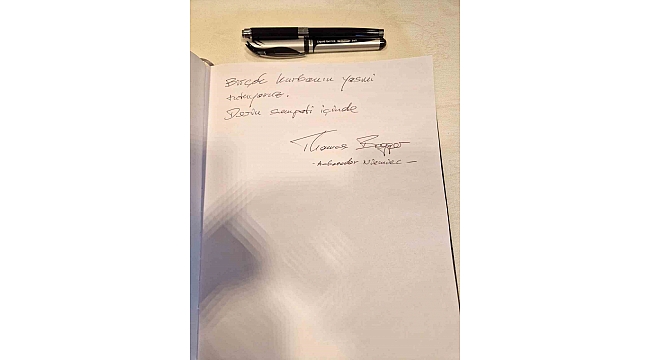 Birçok kurbanın yasını
tutuyoruz.
Derin sempati içinde
Thomas Bagger
- Ambasador Niemiec -